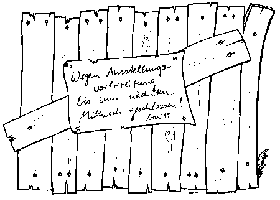 Wegen Ausstellungs-
vorbereitung
bis zum nächsten
Mittwoch geschlossen